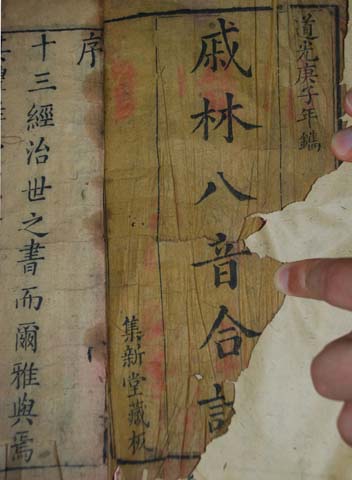 道光庚子年鐫
戚林八音合訂
集新堂藏板
序
十三經治世之書而爾雅與焉